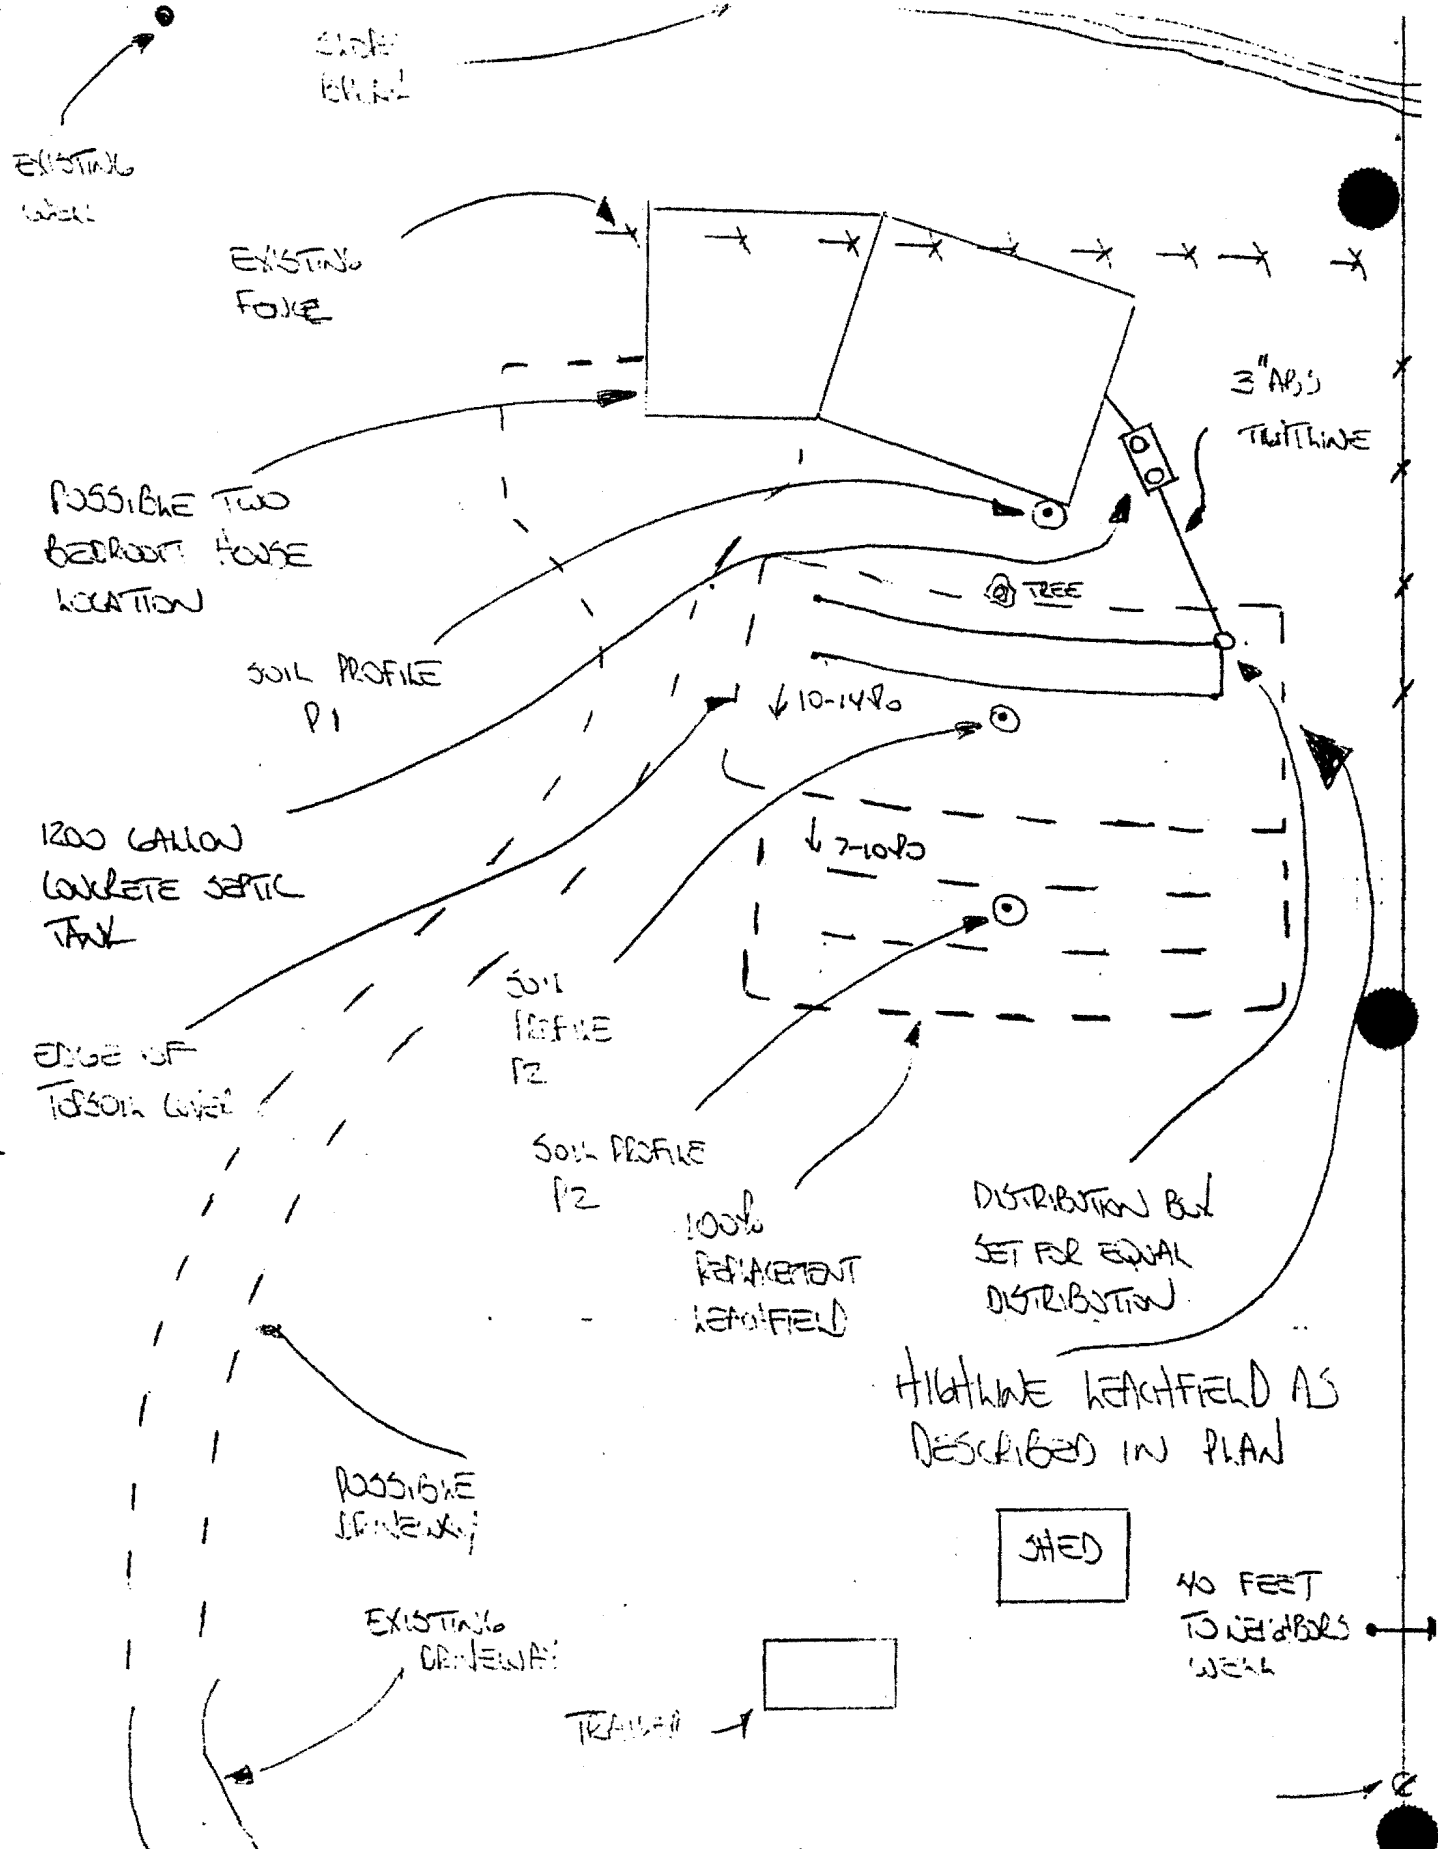 EXISTING
WELL
EXISTING
FENCE
3" ABS
TIGHTLINE
POSSIBLE TWO
BEDROOM HOUSE
LOCATION
TREE
SOIL PROFILE
P1
↓ 10-14%
1200 GALLON
CONCRETE SEPTIC
TANK
↓ 7-10%
SOIL
PROFILE
P2
EDGE OF
TOPSOIL COVER
SOIL PROFILE
P2
100%
REPLACEMENT
LEACHFIELD
DISTRIBUTION BOX
SET FOR EQUAL
DISTRIBUTION
HIGHLINE LEACHFIELD AS
DESCRIBED IN PLAN
POSSIBLE
DRIVEWAY
SHED
40 FEET
TO NEIGHBORS
WELL
EXISTING
DRIVEWAY
TRAILER